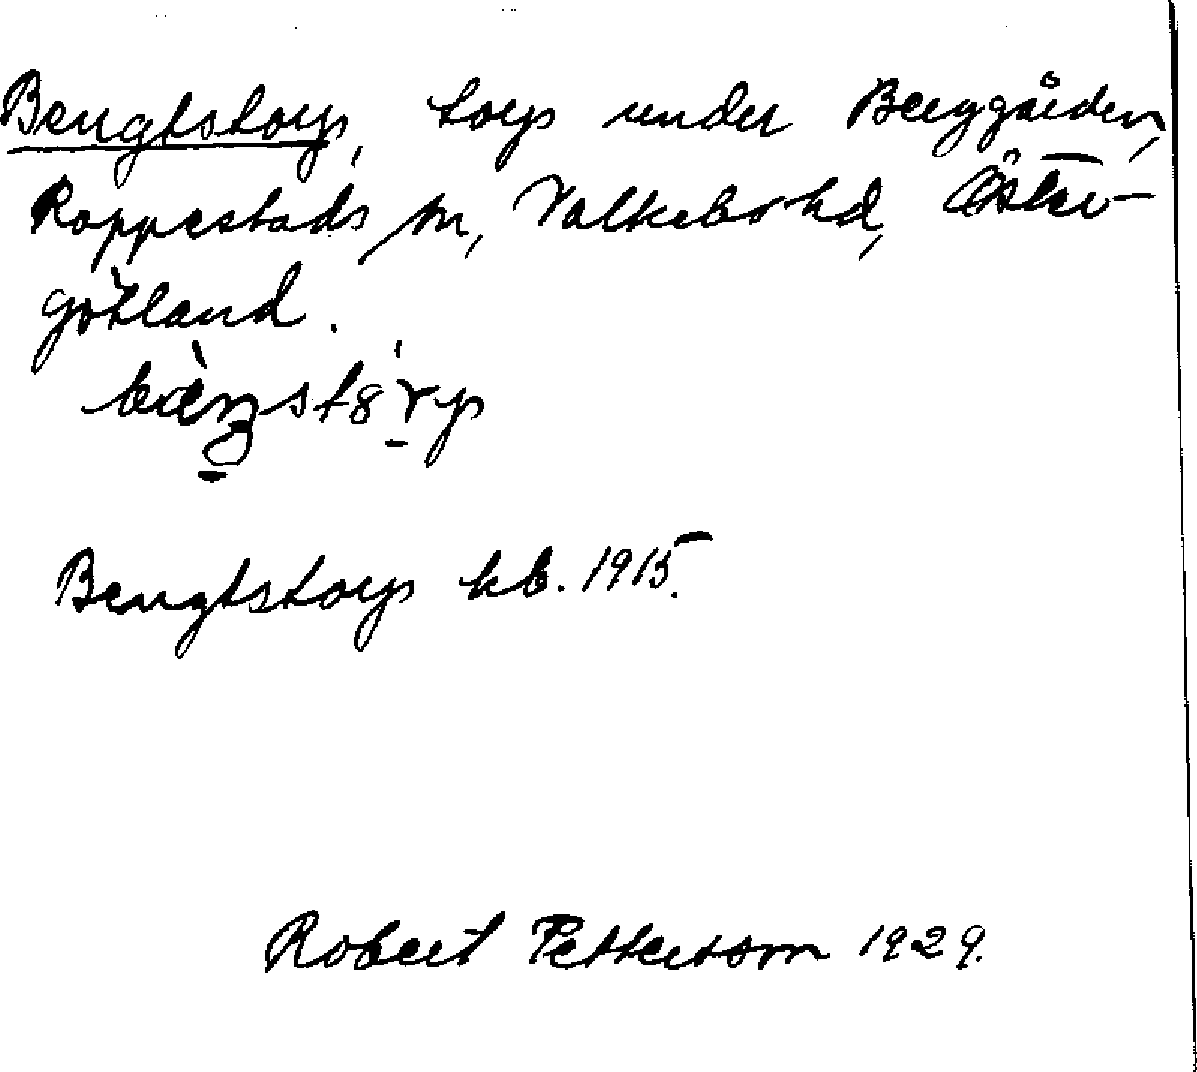 Bengtstorp, torp under Berggården,
Rappestads sn, Valkebo hd, Öster-
götland.
Bengtstorp kb. 1915.
Robert Pettersson 1929.